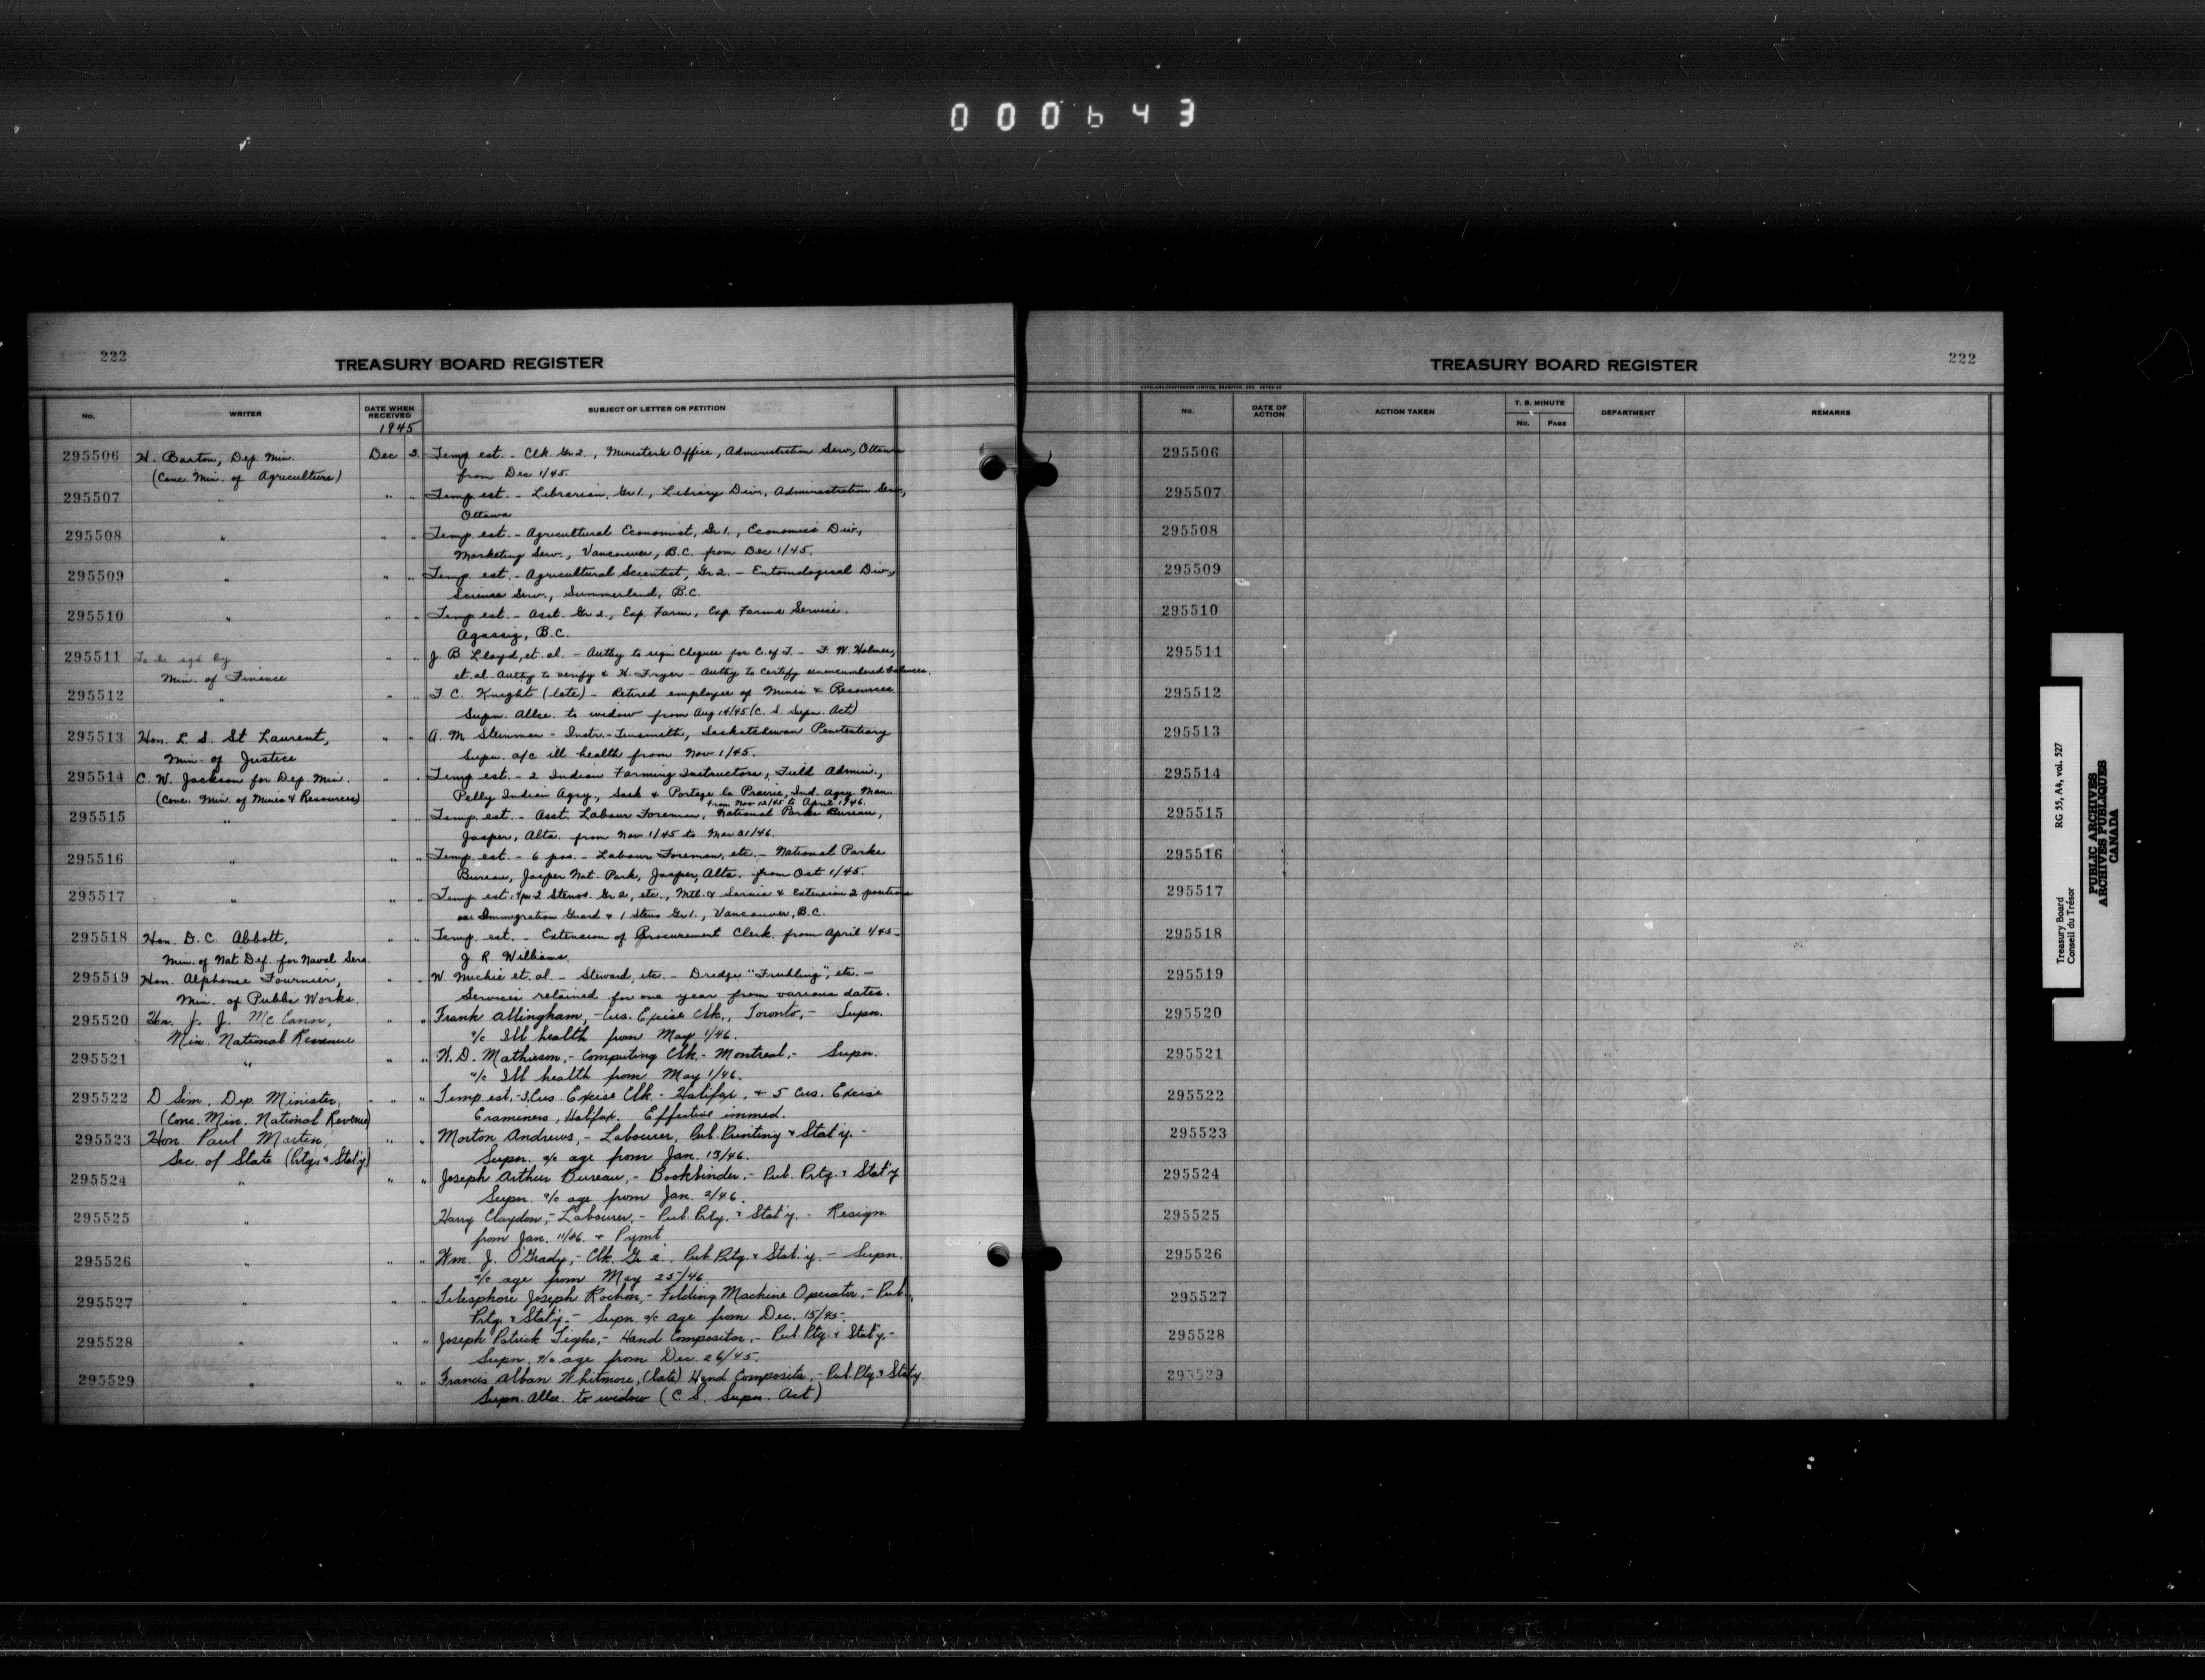 000643
222
TREASURY BOARD REGISTER
No. WRITER DATE WHEN RECEIVED SUBJECT OF LETTER OR PETITION
1945
295506 H. Barton, Dep. Min. Dec 3 Temp est. - Clk. Gr 2., Minister's Office, Administration Serv., Ottawa
(Conc. Min. of Agriculture) from Dec 1/45.
295507 " " " Temp est. - Librarian, Gr 1., Library Div., Administration Serv.,
Ottawa
295508 " " " Temp. est. - Agricultural Economist, Gr 1., Economics Div.,
Marketing Serv., Vancouver, B.C. from Dec 1/45.
295509 " " " Temp. est. - Agricultural Scientist, Gr 2. - Entomological Div.,
Science Serv., Summerland, B.C.
295510 " " " Temp est. - Asst. Gr 2., Exp. Farm, Exp. Farms Service.
Agassiz, B.C.
295511 To be sgd by " " J. B. Lloyd, et. al. - Authy to sign Cheques for C. of T. - F. W. Holmes,
Min. of Finance et. al. Authy to verify & H. Fryer - Authy to Certify unencumbered balances.
295512 " " " F. C. Knight (late) - Retired employee of Mines & Resources
Supn. Allce. to widow from Aug 14/45 (C. S. Supn. Act)
295513 Hon. L. S. St Laurent, " " A. M. Steinman - Instr. - Tinsmith, Saskatchewan Penitentiary
Min. of Justice Supn. a/c ill health from Nov 1/45.
295514 C. W. Jackson for Dep. Min. " " Temp est. - 2 Indian Farming Instructors, Field Admin.,
(Conc. Min. of Mines & Resources) Pelly Indian Agcy., Sask & Portage la Prairie, Ind. Agcy. Man.
from Nov 12/45 to April 1946.
295515 " " " Temp. est. - Asst. Labour Foreman, National Parks Bureau,
Jasper, Alta. from Nov 1/45 to Mar 31/46.
295516 " " " Temp. est. - 6 pos. - Labour Foreman, etc. - National Parks
Bureau, Jasper Nat. Park, Jasper, Alta. from Oct 1/45.
295517 " " " Temp est. 2 Stenos. Gr 2, etc., Mtl. & Sarnia & Extension 2 positions
Immigration Guard & 1 Steno Gr 1., Vancouver, B.C.
295518 Hon. D. C. Abbott, " " Temp. est. - Extension of Procurement Clerk from April 1/45 -
Min. of Nat Def. for Naval Serv. J. R. Williams.
295519 Hon. Alphonse Fournier, " " W. Michie et. al. - Steward, etc. - Dredge "Fruhling", etc. -
Min. of Public Works. Services retained for one year from various dates.
295520 Hon. J. J. McCann, " " Frank Allingham, - Cus. Excise Clk., Toronto, - Supn.
Min. National Revenue a/c Ill health from May 1/46.
295521 " " " W. D. Mathieson, - Computing Clk. - Montreal, - Supn.
a/c Ill health from May 1/46.
295522 D Sim, Dep. Minister, " " Temp est, - 3, Cus. Excise Clk. - Halifax, & 5 Cus. Excise
(Conc. Min. National Revenue) Examiners, Halifax. Effective immed.
295523 Hon. Paul Martin, " " Morton Andrews, - Labourer, Pub. Printing & Stat'y. -
Sec. of State (Prtg. & Stat'y) Supn. a/c age from Jan. 13/46.
295524 " " " Joseph Arthur Bureau, - Bookbinder, - Pub. Prtg. & Stat'y
Supn. a/c age from Jan. 2/46.
295525 " Harry Claydon, - Labourer, - Pub. Prtg. & Stat'y. - Resign.
from Jan. 11/46. & Pymt
295526 " " " Wm. J. O'Grady, - Clk. Gr. 2., Pub. Prtg. & Stat'y - Supn.
a/c age from May 25/46.
295527 " " " Telesphore Joseph Rochon, - Folding Machine Operator, - Pub.
Prtg. & Stat'y. - Supn a/c age from Dec. 15/45.
295528 " " " Joseph Patrick Tighe, - Hand Compositor, - Pub. Ptg. & Stat'y. -
Supn. a/c age from Dec. 26/45.
295529 " " " Francis Alban Whitmore, (late) Hand Compositor, - Pub. Ptg. & Stat'y.
Supn. Allce. to widow (C. S. Supn. Act)
222
TREASURY BOARD REGISTER
COPELAND-CHATTERSON LIMITED, BRAMPTON, ONT.
No. DATE OF ACTION ACTION TAKEN T. B. MINUTE No. PAGE DEPARTMENT REMARKS
295506
295507
295508
295509
295510
295511
295512
295513
295514
295515
295516
295517
295518
295519
295520
295521
295522
295523
295524
295525
295526
295527
295528
295529
Treasury Board RG 55, A4, vol. 527
Conseil du Trésor
PUBLIC ARCHIVES
ARCHIVES PUBLIQUES
CANADA